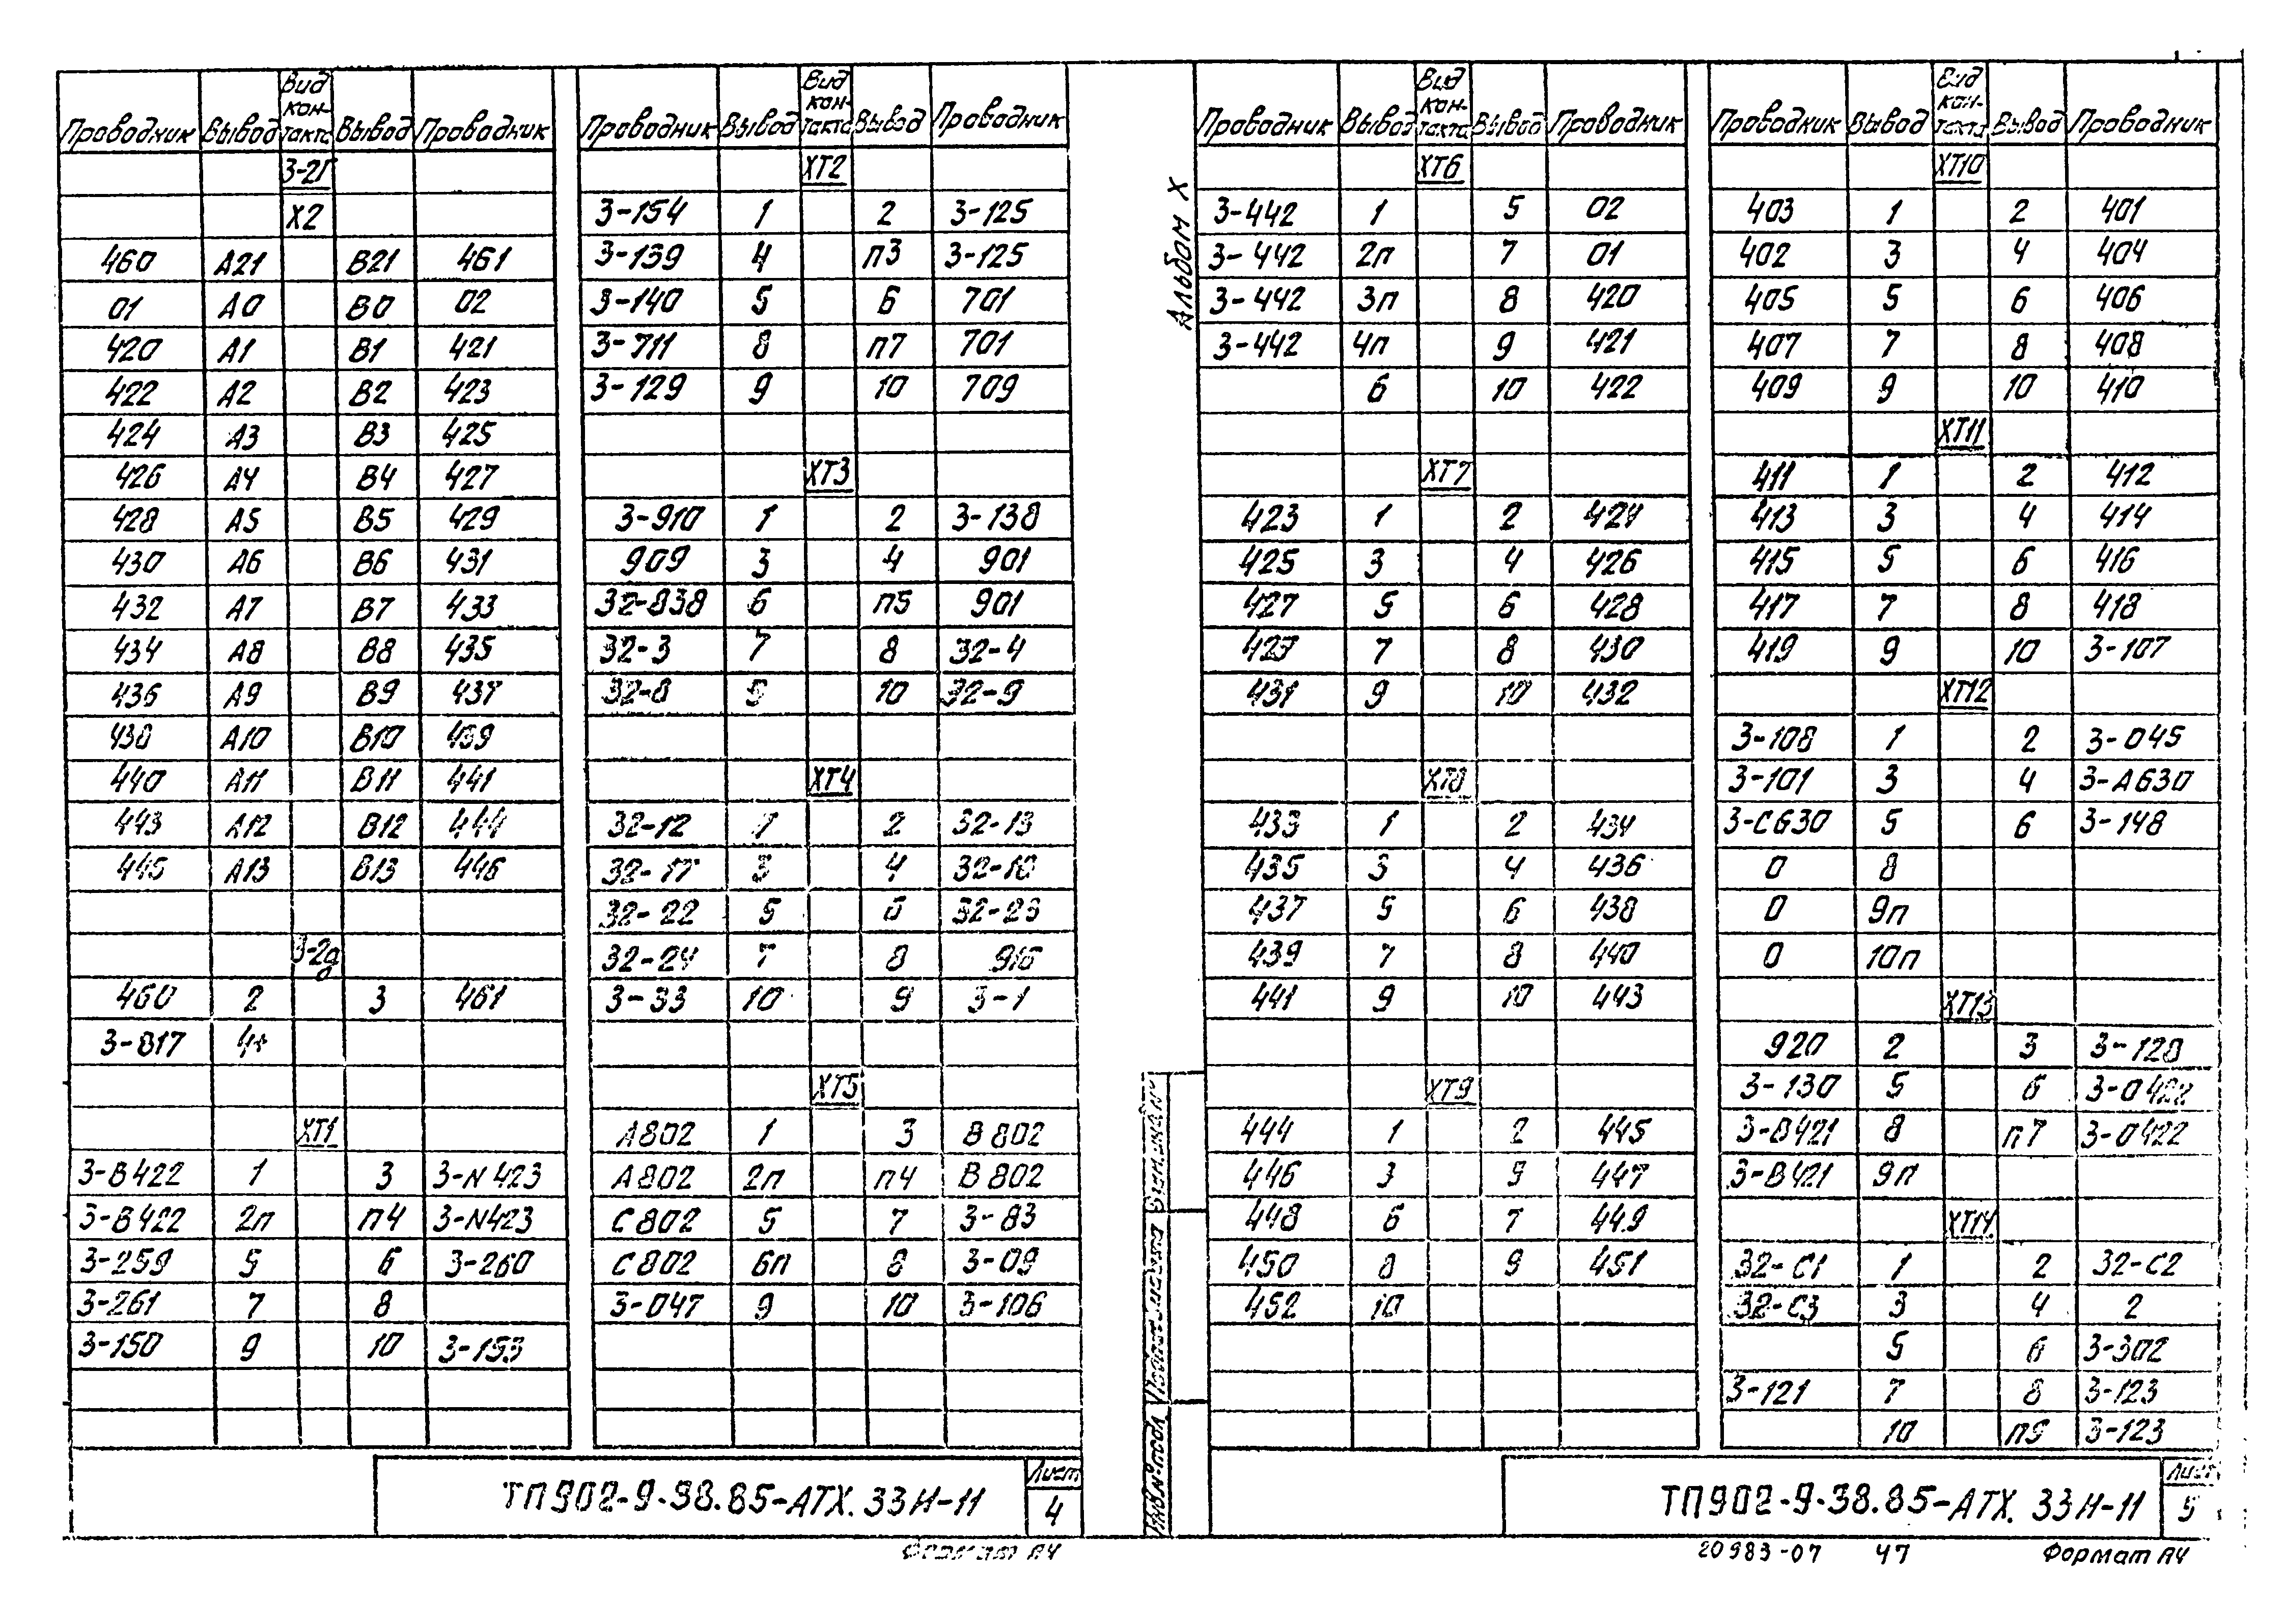 Проводник Вывод Вид кон-такта Вывод Проводник
3-2Г
Х2
460 А21 В21 461
01 А0 В0 02
420 А1 В1 421
422 А2 В2 423
424 А3 В3 425
426 А4 В4 427
428 А5 В5 429
430 А6 В6 431
432 А7 В7 433
434 А8 В8 435
436 А9 В9 437
438 А10 В10 439
440 А11 В11 441
443 А12 В12 444
445 А13 В13 446
3-2д
460 2 3 461
3-817 4+
ХТ1
3-В422 1 3 3-N423
3-В422 2п п4 3-N423
3-259 5 6 3-260
3-261 7 8
3-150 9 10 3-153
Проводник Вывод Вид кон-такта Вывод Проводник
ХТ2
3-154 1 2 3-125
3-139 4 п3 3-125
3-140 5 6 701
3-711 8 п7 701
3-129 9 10 709
ХТ3
3-910 1 2 3-138
909 3 4 901
32-838 6 п5 901
32-3 7 8 32-4
32-8 9 10 32-9
ХТ4
32-12 1 2 32-13
32-17 3 4 32-18
32-22 5 6 32-23
32-24 7 8 916
3-33 10 9 3-1
ХТ5
А802 1 3 В802
А802 2п п4 В802
С802 5 7 3-83
С802 6п 8 3-09
3-047 9 10 3-106
ТП902-9-38.85-АТХ.33И-11
Лист
4
Формат А4
Альбом X
Проводник Вывод Вид кон-такта Вывод Проводник
ХТ6
3-442 1 5 02
3-442 2п 7 01
3-442 3п 8 420
3-442 4п 9 421
6 10 422
ХТ7
423 1 2 424
425 3 4 426
427 5 6 428
429 7 8 430
431 9 10 432
ХТ8
433 1 2 434
435 3 4 436
437 5 6 438
439 7 8 440
441 9 10 443
ХТ9
444 1 2 445
446 3 9 447
448 6 7 449
450 8 9 451
452 10
Проводник Вывод Вид кон-такта Вывод Проводник
ХТ10
403 1 2 401
402 3 4 404
405 5 6 406
407 7 8 408
409 9 10 410
ХТ11
411 1 2 412
413 3 4 414
415 5 6 416
417 7 8 418
419 9 10 3-107
ХТ12
3-108 1 2 3-045
3-101 3 4 3-А630
3-С630 5 6 3-148
0 8
0 9п
0 10п
ХТ13
920 2 3 3-128
3-130 5 6 3-0422
3-В421 8 п7 3-0422
3-В421 9п
ХТ14
32-С1 1 2 32-С2
32-С3 3 4 2
5 6 3-302
3-121 7 8 3-123
10 п9 3-123
Инв.№подл.
ТП902-9-38.85-АТХ.33И-11
Лист
5
20983-07 47 Формат А4